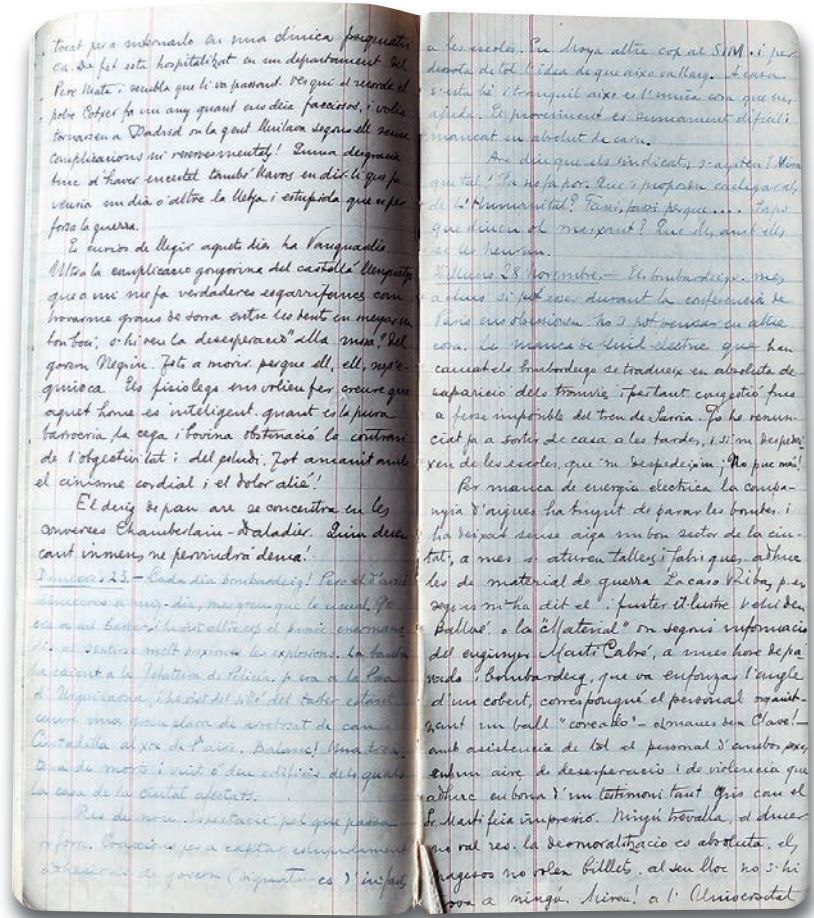 tocat pera internarlo en una clinica psiquiatri
ca. De fet esta hospitalitzat en un departament del
Pere Mata i sembla que li va passant. Ves qui el recorde el
pobre Cotxer fa un any quant ens deia facciosos, i volia
tornarsen a Madrid on la gent lluitava segons ell sense
complicacions ni reserves mentals! Quina desgracia
tinc d'haver encertat també llavors en dir-li que ja
veuria un dia o altre la lletja i estupida que es per
força la guerra.
Es curios de llegir aquets dies ha Vanguardia.
Ultra la complicacio gongorina del castellá llenguatge
que a mi me fa verdaderes esgarrifances com
trovarme grans de sorra entre les dents en menjar un
bon boci, s'hi veu la desesperacio
govern Negrin. Tots a morir perque ell, ell, no s'e-
quivoca. Els fisiolegs ens volien fer creure que
aquet home es inteligent quant es la pura
barroeria, la cega i bovina obstinació lo contrari
de l'objectivitat i del estudi. Tot amanit amb
el cinisme cordial i el dolor alié!
El desig de pau are se concentra en les
converses Chamberlain-Daladier. Quin desen
cant inmens ne pervindrá demá!
Dimecres 23.- Cada dia bombardeig! Pero el d'avui
dimecres a mig-dia, mes greu que lo usual. Yo
era a cal barber i he vist altre cop el panic
al sentirse molt proximes les explosions. La bomba
ha caigut a la Jefatura de Policia, jo era a la Plaça
d'Urquinaona, i he vist del silló del barber estant
caure una gran placa de arrebosat de can
Ciutadilla al xoc de l'aire. Balanç! Una tren
tena de morts i vuit ó deu edificis dels quals
la casa de la ciutat afectats.
Res de nou. Espectacio pel que passa
a fora. Coaccions pera captar estupidament
adhesions de govern (signatures) d'infants
a les escoles. En Moya altre cop al SIM. i per
derrota de tot l'idea de que aixo va llarg. A casa
s'esta be i tranquil aixo es l'unica cosa que ens
ajuda. El proveiment es sumament dificil i
mancat en absolut de carn.
Are diu que els sindicats s'agiten? Mira
que tal! Ja no fa por. Que's proposen
de L'Humanitat? Fassi, fassi perque.... Saps
que diuen el Que ells, amb ells
se les heuran.
Dilluns 28 Novembre- Els bombardeigs mes
si pot esser durant la conferencia de
Paris ens obsesionen. No's pot pensar en altre
cosa. La manca de fluid electric que han
causat els bombardeigs se tradueix en absoluta de
saparicio dels tranvies i per tant congestió fins
a ferse imposible del tren de Sarria. Jo he renun-
ciat ja a sortir de casa a les tardes, i si'm despedei-
xen de les escoles, que 'm despedeixin ¡No puc més!
Per manca de energia electrica la compa-
nyia d'aigues ha tingut de parar les bombes i
ha deixat sense aiga un bon sector de la ciu-
tat, a mes s'aturen tallers i fabriques, adhuc
les de material de guerra. La casa Ribas, p. ex.
segons m'ha dit el fuster il·lustre
Ballvé, o la "Material" on segons informacio
del enginyer Marti Cabré, a unes hores de pa-
rada i bombardeig, que va enfonzar l'angle
d'un cobert, correspongué el personal organit-
zant un ball "coreado" - olimaues den Clavé!-
amb asistencia de tot el personal d'ambos sexes
enbun aire de desesperacio i de violencia que
adhuc en bona d'un testimoni tant gris com el
Sr. Marti feia impresio. Ningú trevalla, el diner
no val res. la desmoralitzacio es absoluta, els
pagesos no volen billets. al seu lloc no s'hi
trova a ningú. Mireu! a l'Universitat